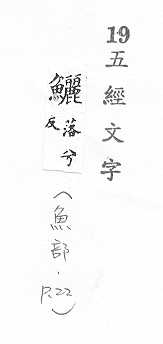 19 五經文字
鱺 落兮反
（魚部・P.22）